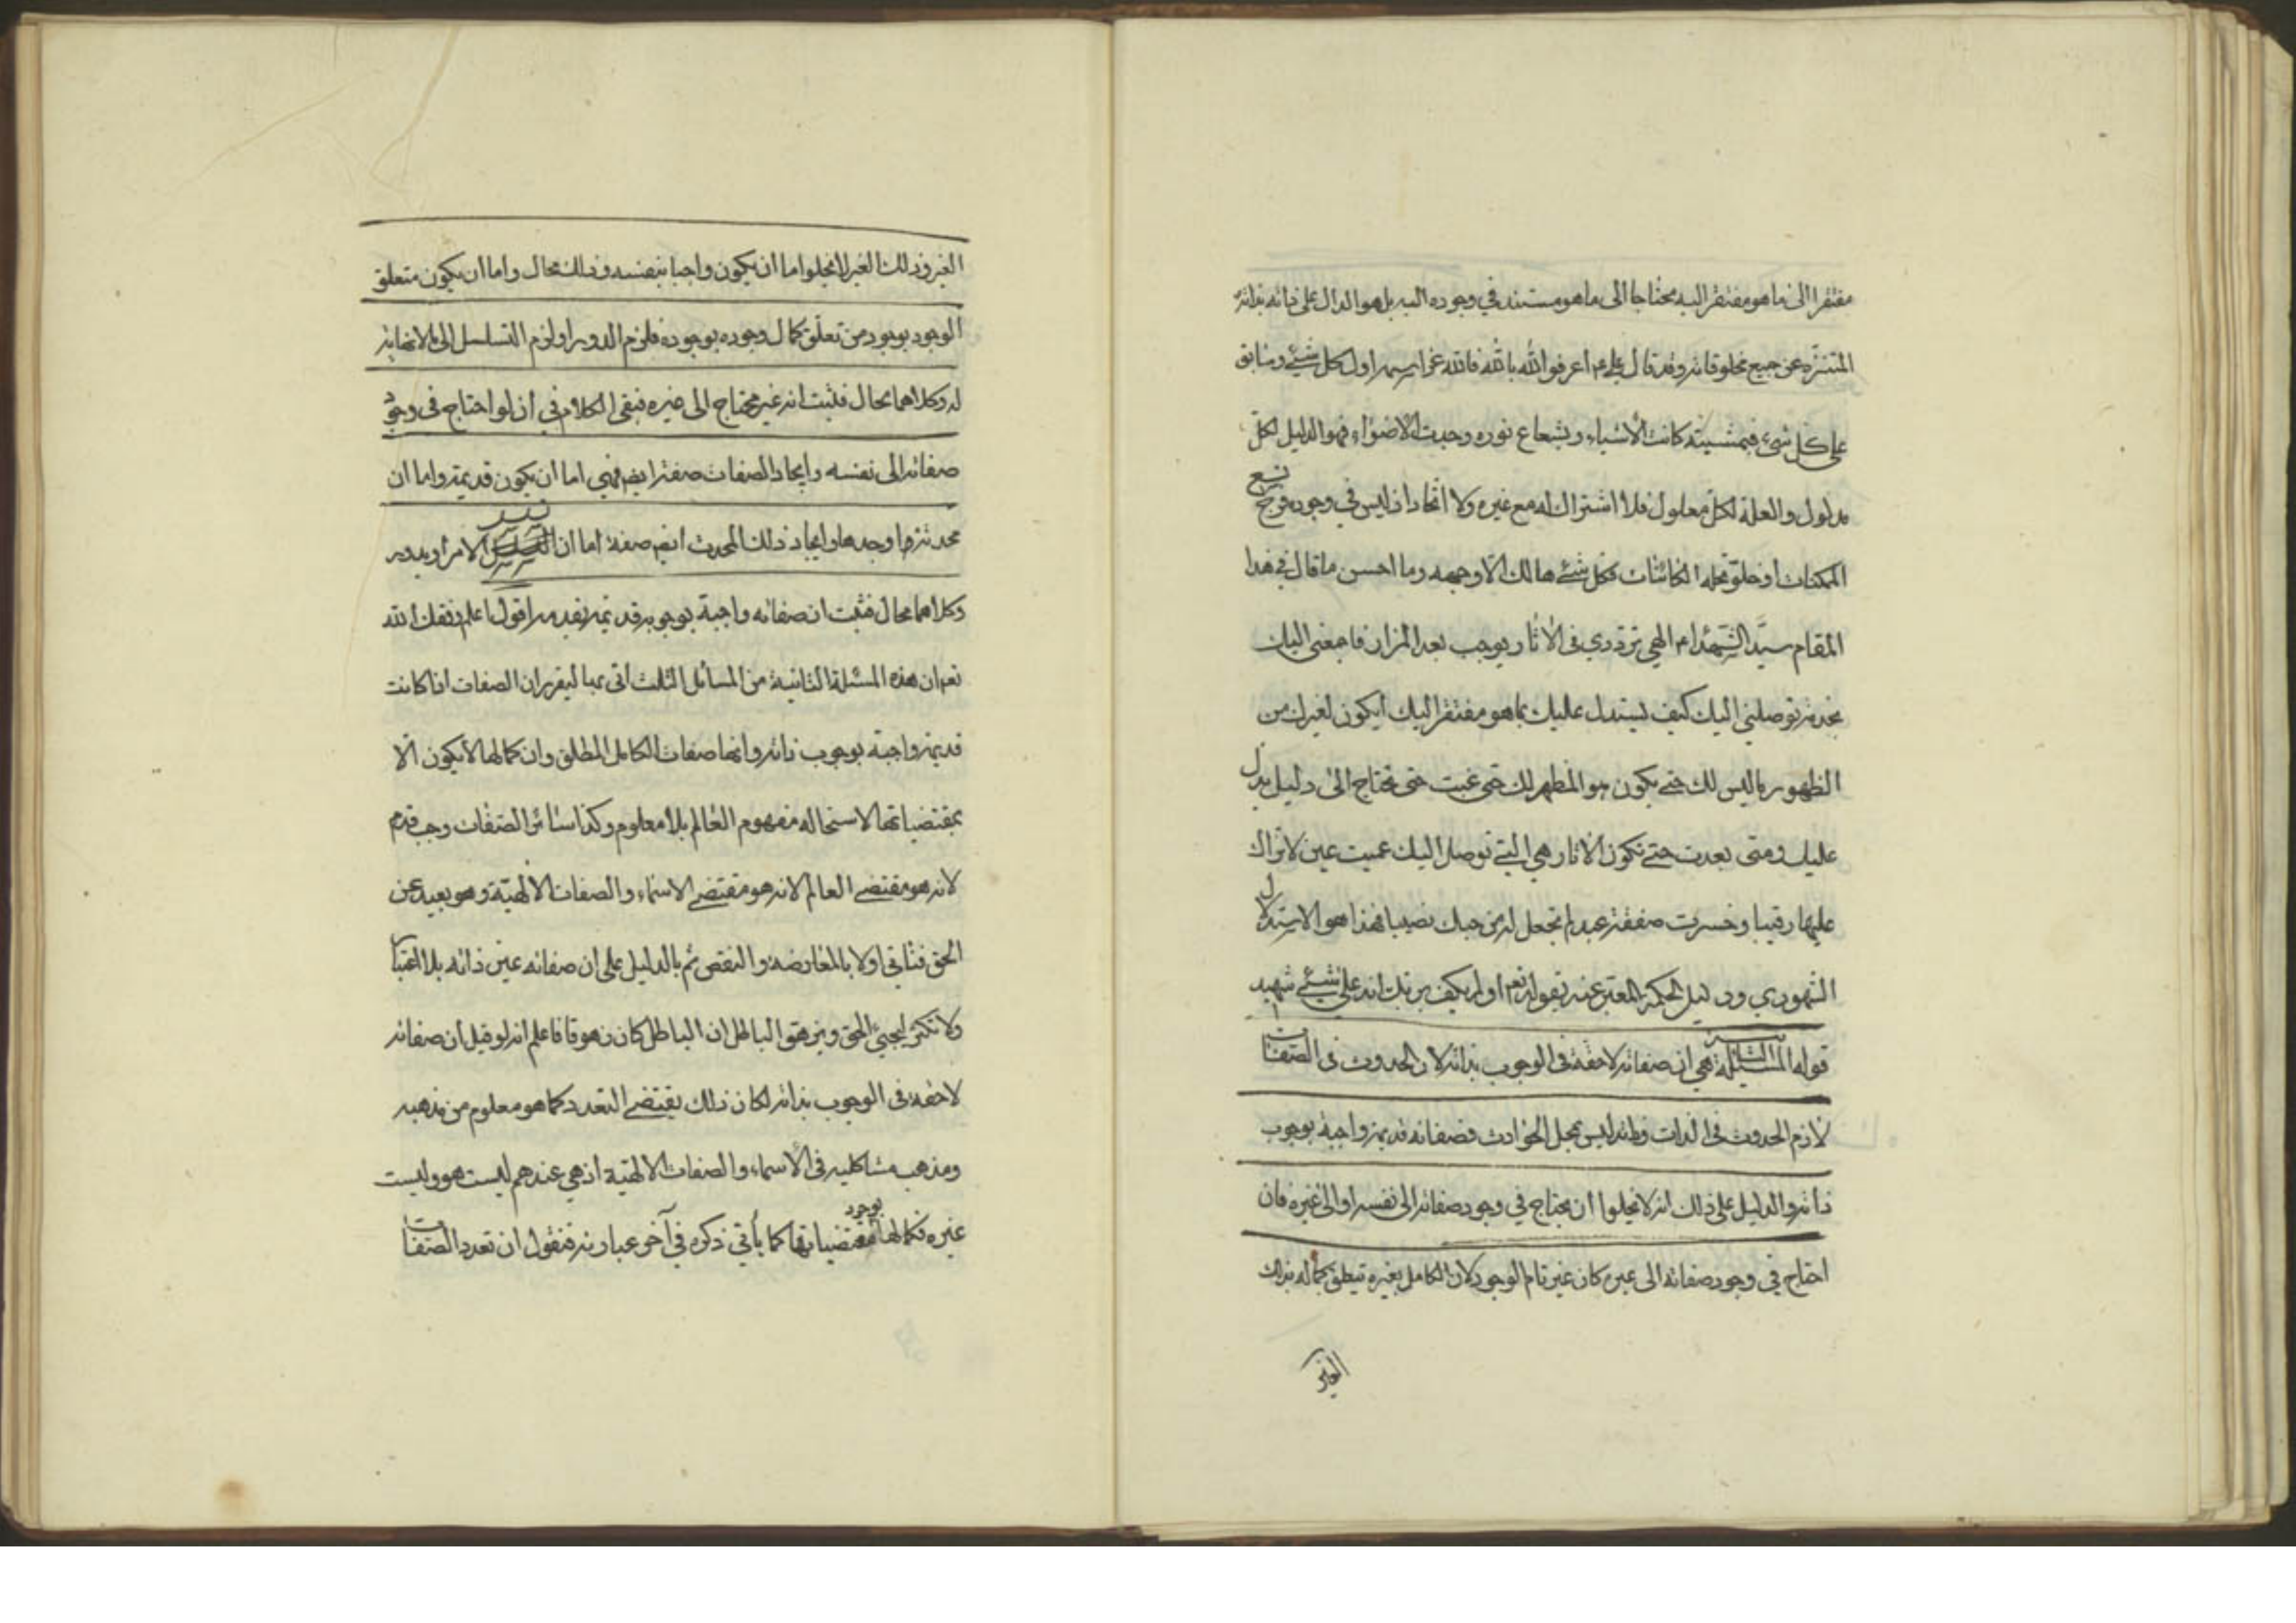 مفتقرا الى ما هو مفتقر اليه محتاجا الى ما هو مستند في وجوده اليه بل هو الدال على ذاته بذاته
المتنزه عن جميع مخلوقاته وقد قال علي ع اعرفوا الله بالله فالله عز اسمه اول كل شيئ وسابق
على كل شيء فبمشيته كانت الأشياء وبشعاع نوره وجدت الاضواء فهو الدليل لكل
مدلول والعلة لكل معلول فلا اشتراك له مع غيره ولا اتحاد اذ ليس في وجوده
الممكنات او خلق الكائنات فكل شيئ هالك الا وجهه وما احسن ما قال في هذا
المقام سيد الشهداء ع الهي ترددي في الاثار يوجب بعد المزار فاجمعني اليك
بخدمة توصلني اليك كيف يستدل عليك بما هو مفتقر اليك أيكون لغيرك من
الظهور ما ليس لك حتى يكون هو المظهر لك متى غبت حتى تحتاج الى دليل يدل
عليك ومتى بعدت حتى تكون الاثار هي التي توصل اليك عميت عين لا تراك
عليها رقيبا وخسرت صفقة عبد لم تجعل له من حبك نصيبا فهذا هو الاستدلال
الشهودي ودليل الحكمة المعبر عنه بقوله تع اولم يكف بربك انه على شيئ شهيد
قوله المسئلة الثانية هي ان صفاته لاحقة في الوجوب بذاته لان الحدوث في الصفات
لازم الحدوث في الذات وذاته ليس بمحل الحوادث فصفاته قديمة واجبة بوجوب
ذاته والدليل على ذلك انه لا يخلوا ان يحتاج في وجود صفاته الى نفسه او الى غيره فان
احتاج في وجود صفاته الى غيره كان غير تام الوجود لان الكامل بغيره تعلق كماله بذلك
الغير
الغير وذلك الغير لا يخلوا اما ان يكون واجبا بنفسه وذلك محال واما ان يكون متعلق
الوجود بوجود من تعلق كمال وجوده بوجوده فلزم الدور او لزم التسلسل الى ما لا نهاية
له وكلاهما محال فثبت انه غير محتاج الى غيره فبقى الكلام في ان لو احتاج في وجود
صفاته الى نفسه وايجاد الصفات صفة ايضا فهي اما ان يكون قديمة واما ان
محدثة وايجاد ذلك المحدث ايض صفة اما ان يتسلسل الامر او يدور
وكلاهما محال فثبت ان صفاته واجبة بوجوبه قديمة بقدمه اقول اعلم وفقك الله
تع ان هذه المسئلة الثانية من المسائل الثلث اتى بها ليقرر ان الصفات اذا كانت
قديمة واجبة بوجوب ذاته وانها صفات الكامل المطلق وان كمالها لا يكون الا
بمقتضياتها لاستحالة مفهوم العالم بلا معلوم وكذا سائر الصفات وجب قدم
لانه هو مقتضى العالم لانه هو مقتضى الاسماء والصفات الالهية وهو بعيد عن
الحق فناتي اولا بالمعارضة والنقض ثم بالدليل على ان صفاته عين ذاته بلا اعتبار
ولا تكثر ليجيئ الحق ويزهق الباطل ان الباطل كان زهوقا فاعلم انه لو قيل ان صفاته
لاحقة في الوجوب بذاته لكان ذلك يقتضى التعدد كما هو معلوم من مذهبه
ومذهب مشاكليه في الأسماء والصفات الالهية اذ هي عندهم ليست هو وليست
غيره فكمالها بوجود مقتضياتها كما يأتي ذكره في آخر عبارته فنقول ان تعدد الصفات